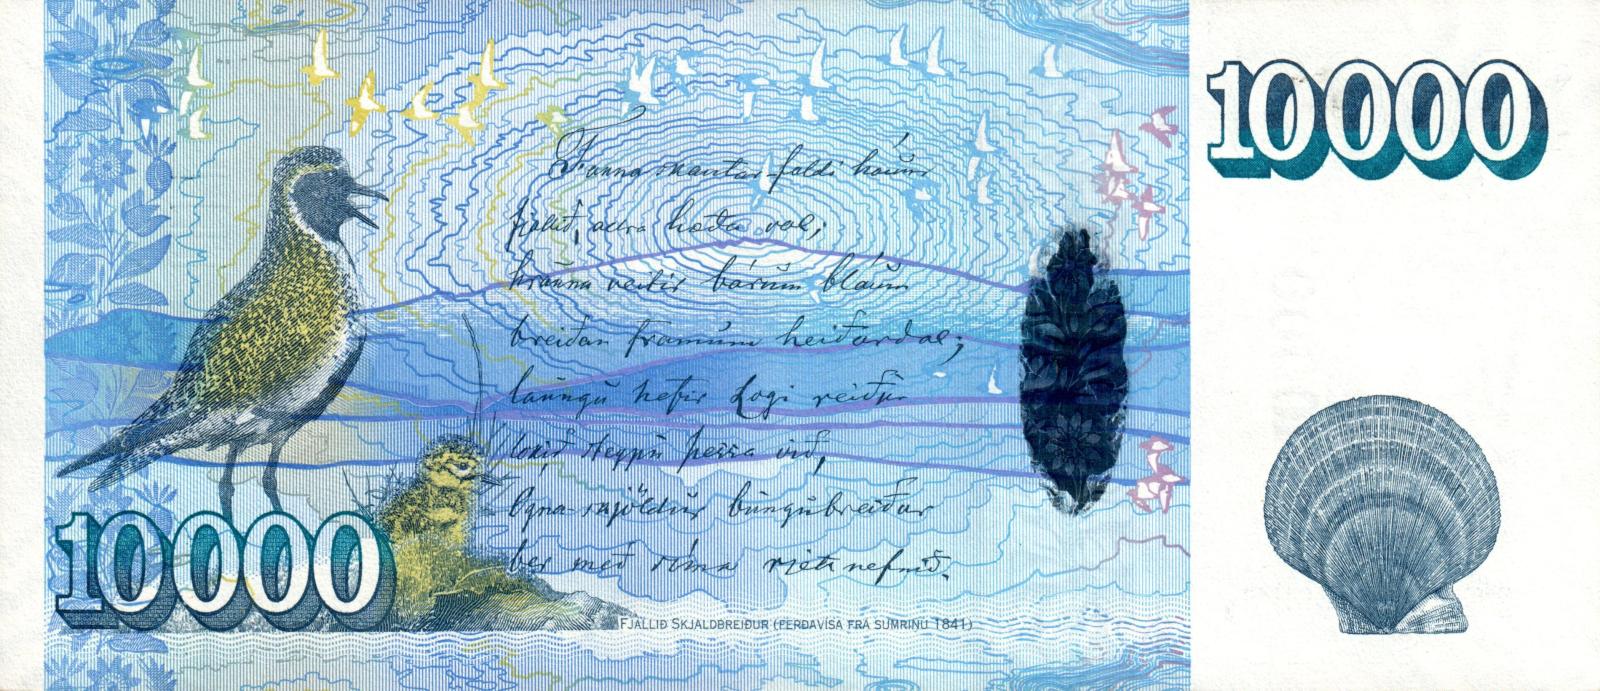 10000
Fanna skautar faldi háum
fjallið, allra hæða val;
hrauna veitir bárum bláum
breiðan framum heiðardal;
laungu hefir Logi reiður
lokið steypu þessa við,
Ógna-skjöldur bungubreiður
ber með sóma rjettnefnið.
10000
FJALLIÐ SKJALDBREIÐUR (FERÐAVÍSA FRÁ SUMRINU 1841)